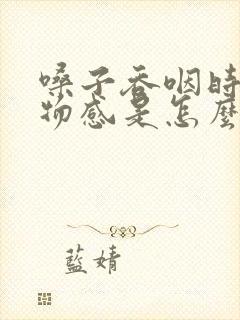 嗓子吞咽時
物感是怎麼
藍婧